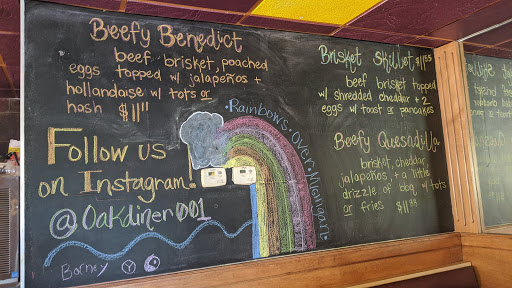 Beefy Benedict
beef brisket, poached
eggs topped w/ jalapeños +
hollandaise w/ tots or
hash $11
Follow us
on Instagram!
@Oakdiner001
Barney
Rainbows over Michigan
Brisket Skillet $11
beef brisket topped
w/ shredded cheddar + 2
eggs w/ toast or pancakes
Beefy Quesadilla
brisket, cheddar,
jalapeños, + a little
drizzle of bbq w/ tots
or fries $11